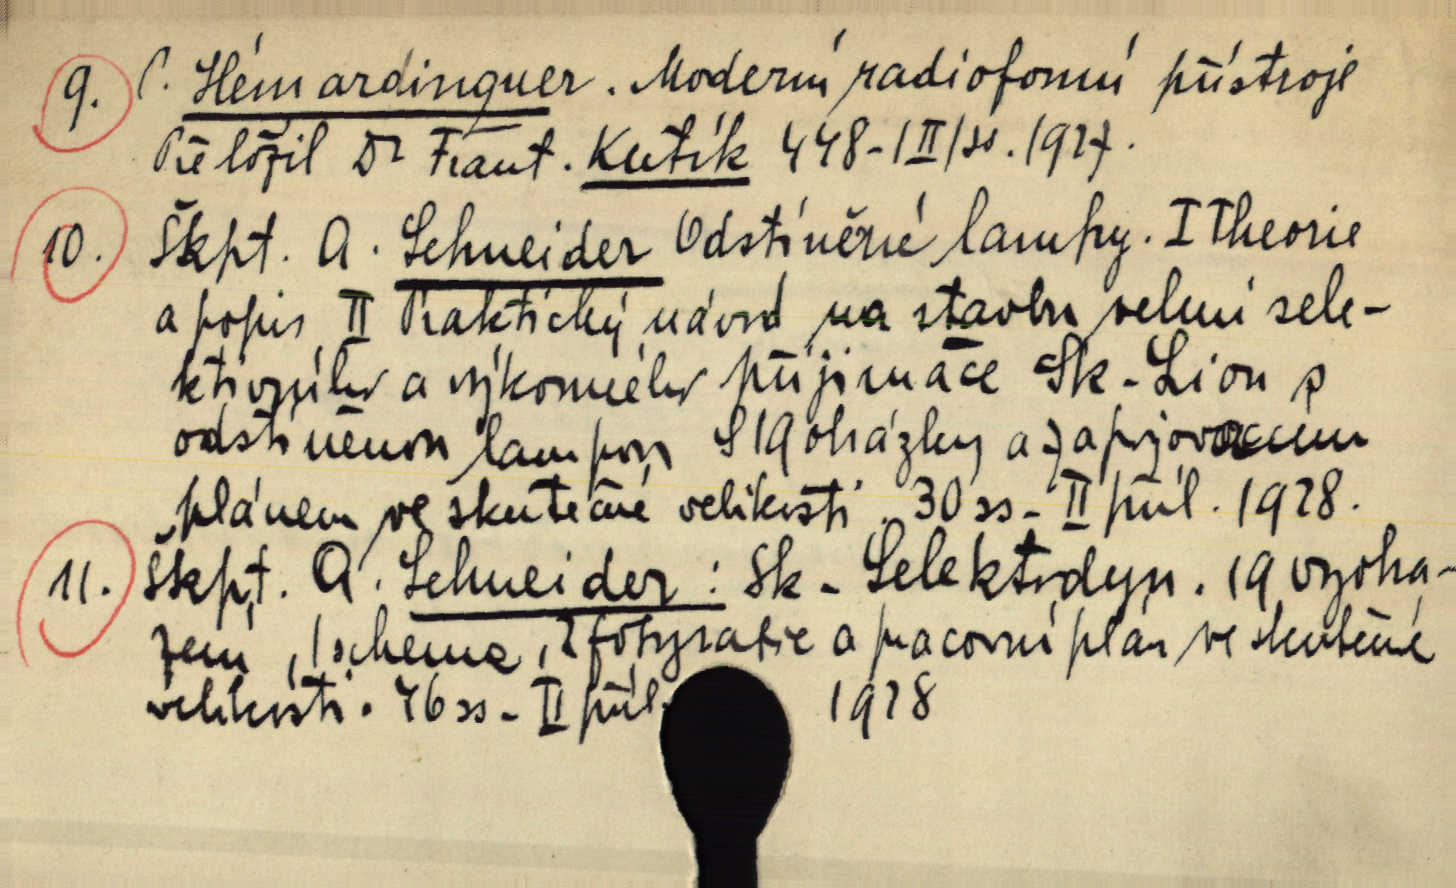 9. P. Hémardinquer. Moderní radiofonní přístroje
Přeložil Dr Frant. Kutík 448-/II/ss. 1927.
10. Škpt. A. Schneider Odstíněné lampy. I Theorie
a popis II Praktický návod na stavbu velmi sele-
ktivního a výkonného přijimače Sk-Lion s
odstíněnou lampou S 19 obrázky a zapojovacím
plánem ve skutečné velikosti. 30 ss - II půl. 1928.
11. Škpt. A. Schneider: Sk - Selektrodyn. 19 vyobra-
zení, 1 schema, 2 fotografie a pracovní plán ve skutečné
velikosti. 46 ss - II půl. 1928